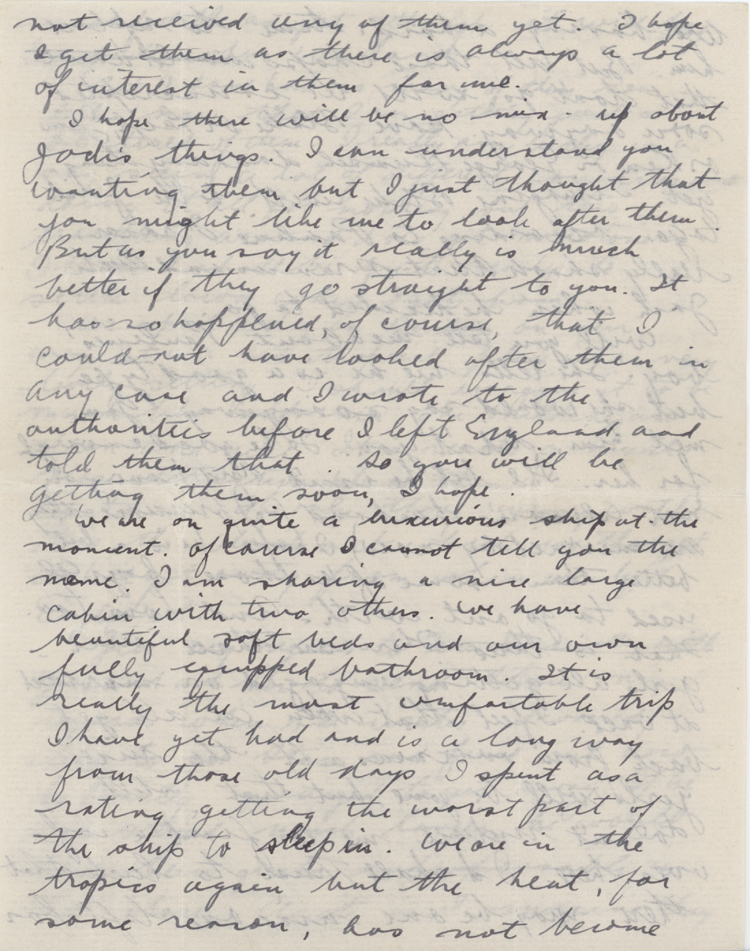 not received any of them yet. I hope
I get them as there is always a lot
of interest in them for me.
I hope there will be no mix-up about
Jodi's things. I can understand you
wanting them but I just thought that
you might like me to look after them.
But as you say it really is much
better if they go straight to you. It
has so happened, of course, that I
could not have looked after them in
any case and I wrote to the
authorities before I left England and
told them that. So you will be
getting them soon, I hope.
We are on quite a luxurious ship at the
moment. Of course I cannot tell you the
name. I am sharing a nice large
cabin with two others. We have
beautiful soft beds and our own
fully equipped bathroom. It is
really the most comfortable trip
I have yet had and is a long way
from those old days I spent as a
rating getting the worst part of
the ship to sleep in. We are in the
tropics again but the heat, for
some reason, has not become